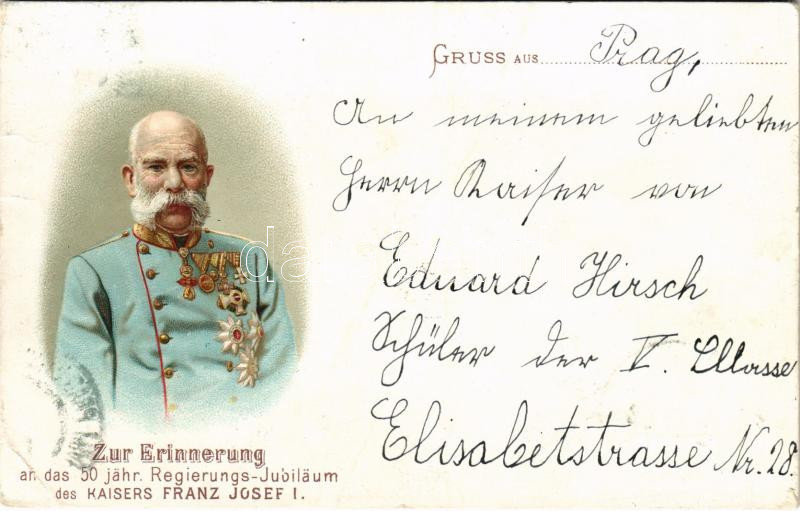 GRUSS AUS Prag,
An meinem geliebten
Herrn Kaiser von
Eduard Hirsch
Schüler der V. Cllasse
Elisabetstrasse Nr. 28.
Zur Erinnerung
an das 50 jähr. Regierungs-Jubiläum
des KAISERS FRANZ JOSEF I.